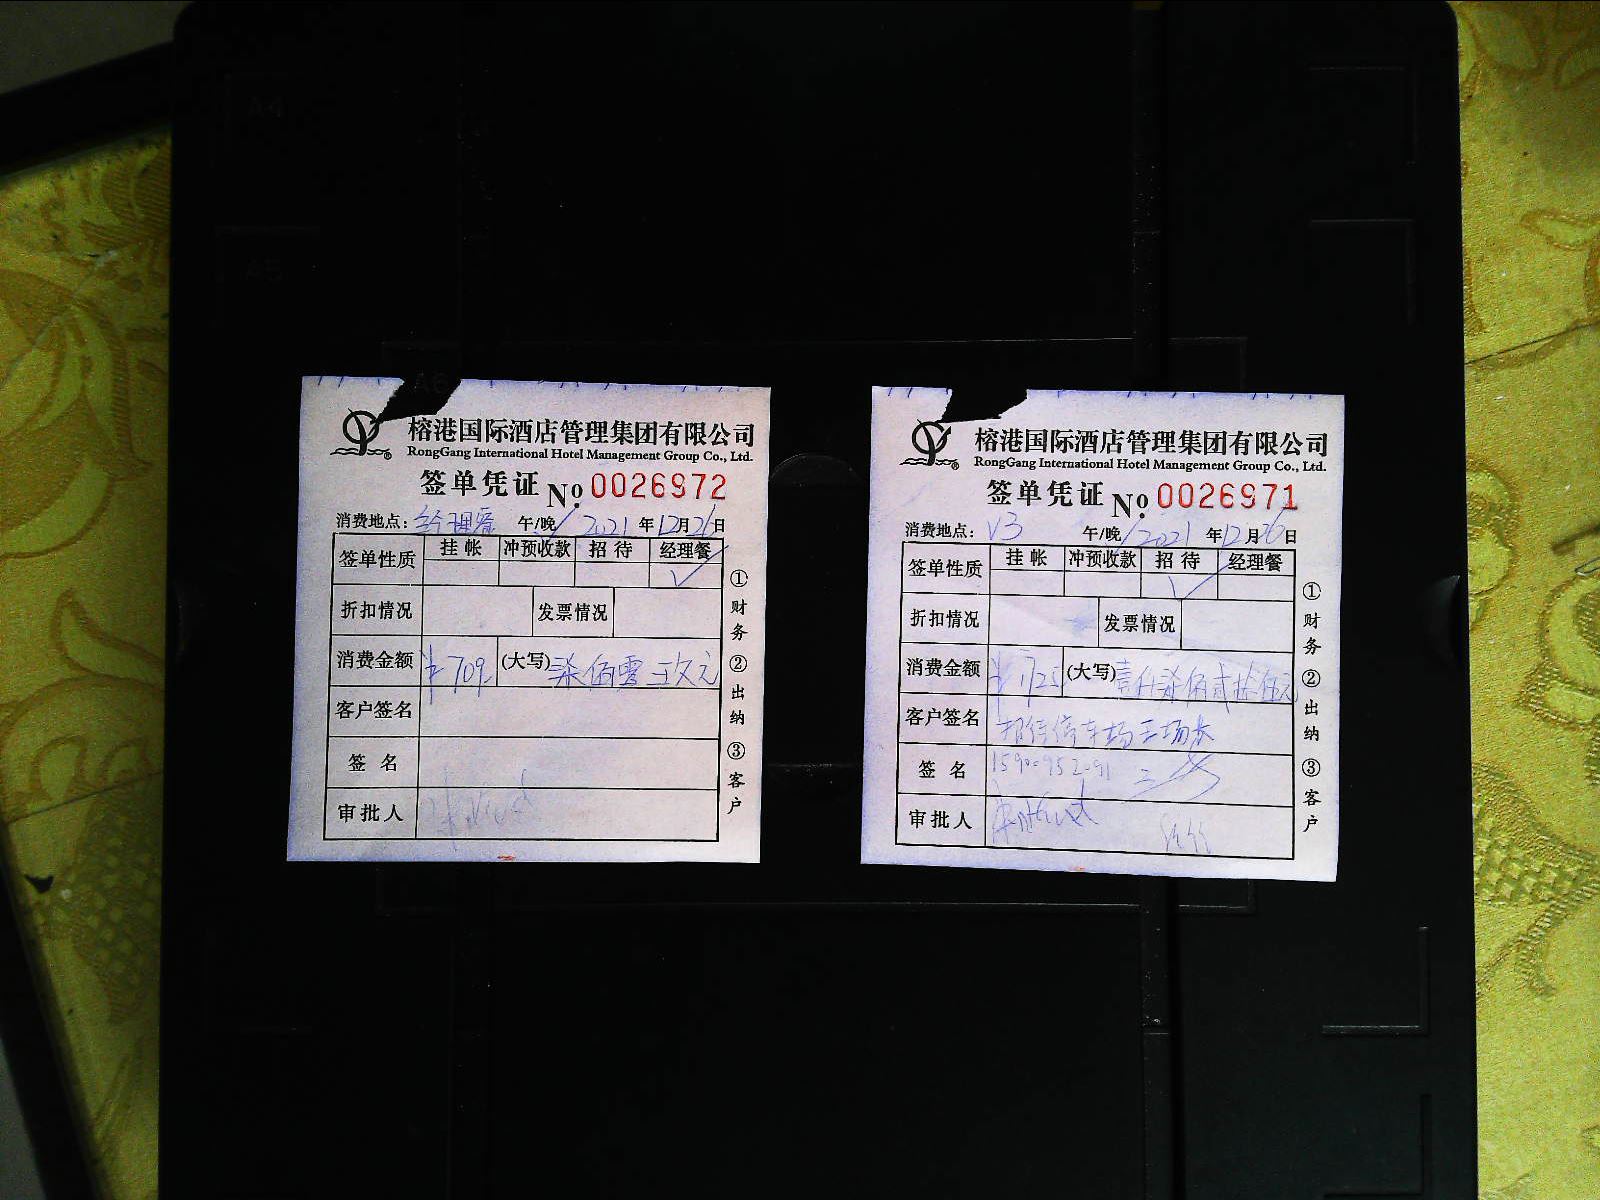 A4
A5
A6
榕港国际酒店管理集团有限公司
RongGang International Hotel Management Group Co., Ltd.
签单凭证 No. 0026972
消费地点：经理餐 午/晚 2021年12月26日
签单性质 挂帐 冲预收款 招待 经理餐
✓
折扣情况 发票情况
消费金额 ¥709 (大写) 柒佰零玖元
客户签名
签名
审批人
①财务 ②出纳 ③客户
榕港国际酒店管理集团有限公司
RongGang International Hotel Management Group Co., Ltd.
签单凭证 No. 0026971
消费地点：V3 午/晚 2021年12月26日
签单性质 挂帐 冲预收款 招待 经理餐
✓
折扣情况 发票情况
消费金额 ¥1725 (大写) 壹仟柒佰贰拾伍元
客户签名 招待停车场王场长
签名
审批人
①财务 ②出纳 ③客户